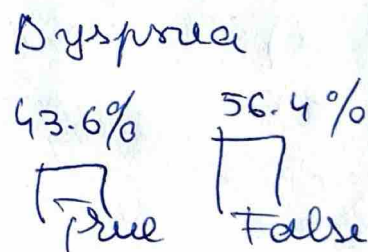 Dyspnea
43.6% 56.4%
True False